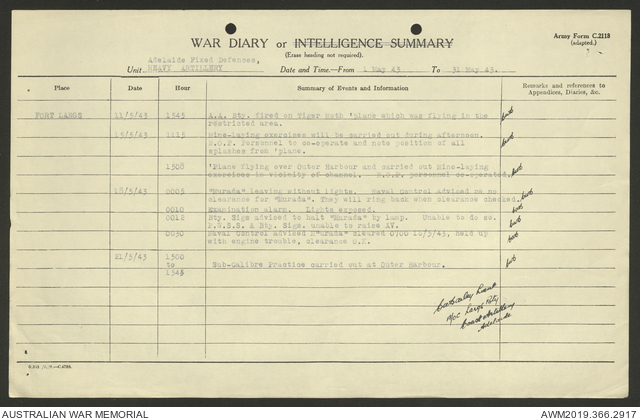 WAR DIARY or INTELLIGENCE SUMMARY
(Erase heading not required).
Army Form C.2118
(adapted.)
Adelaide Fixed Defences,
Unit HEAVY ARTILLERY Date and Time.—From 1 May 43 To 31 May 43.
Place Date Hour Summary of Events and Information Remarks and references to Appendices, Diaries, &c.
FORT LARGS 11/5/43 1545 A.A. Bty. fired on Tiger Moth 'plane which was flying in the
restricted area.
15/5/43 1115 Mine-laying exercises will be carried out during afternoon.
B.O.P. Personnel to co-operate and note position of all
splashes from 'plane.
1508 'Plane flying over Outer Harbour and carried out Mine-laying
exercises in vicinity of channel. B.O.P. personnel co-operated.
18/5/43 0005 "Murada" leaving without lights. Naval Control advised no
clearance for "Murada". They will ring back when clearance checked.
0010 Examination alarm. Lights exposed.
0012 Bty. Sigs advised to halt "Murada" by lamp. Unable to do so.
P.W.S.S. & Bty. Sigs. unable to raise XV.
0030 Naval Control advised M"urada" cleared 0700 18/5/43, held up
with engine trouble, clearance O.K.
21/5/43 1300
to
1345 Sub-Calibre Practice carried out at Outer Harbour.
Lieut
O/C Largs Bty
Coast Artillery
Adelaide
AUSTRALIAN WAR MEMORIAL AWM2019.366.2917